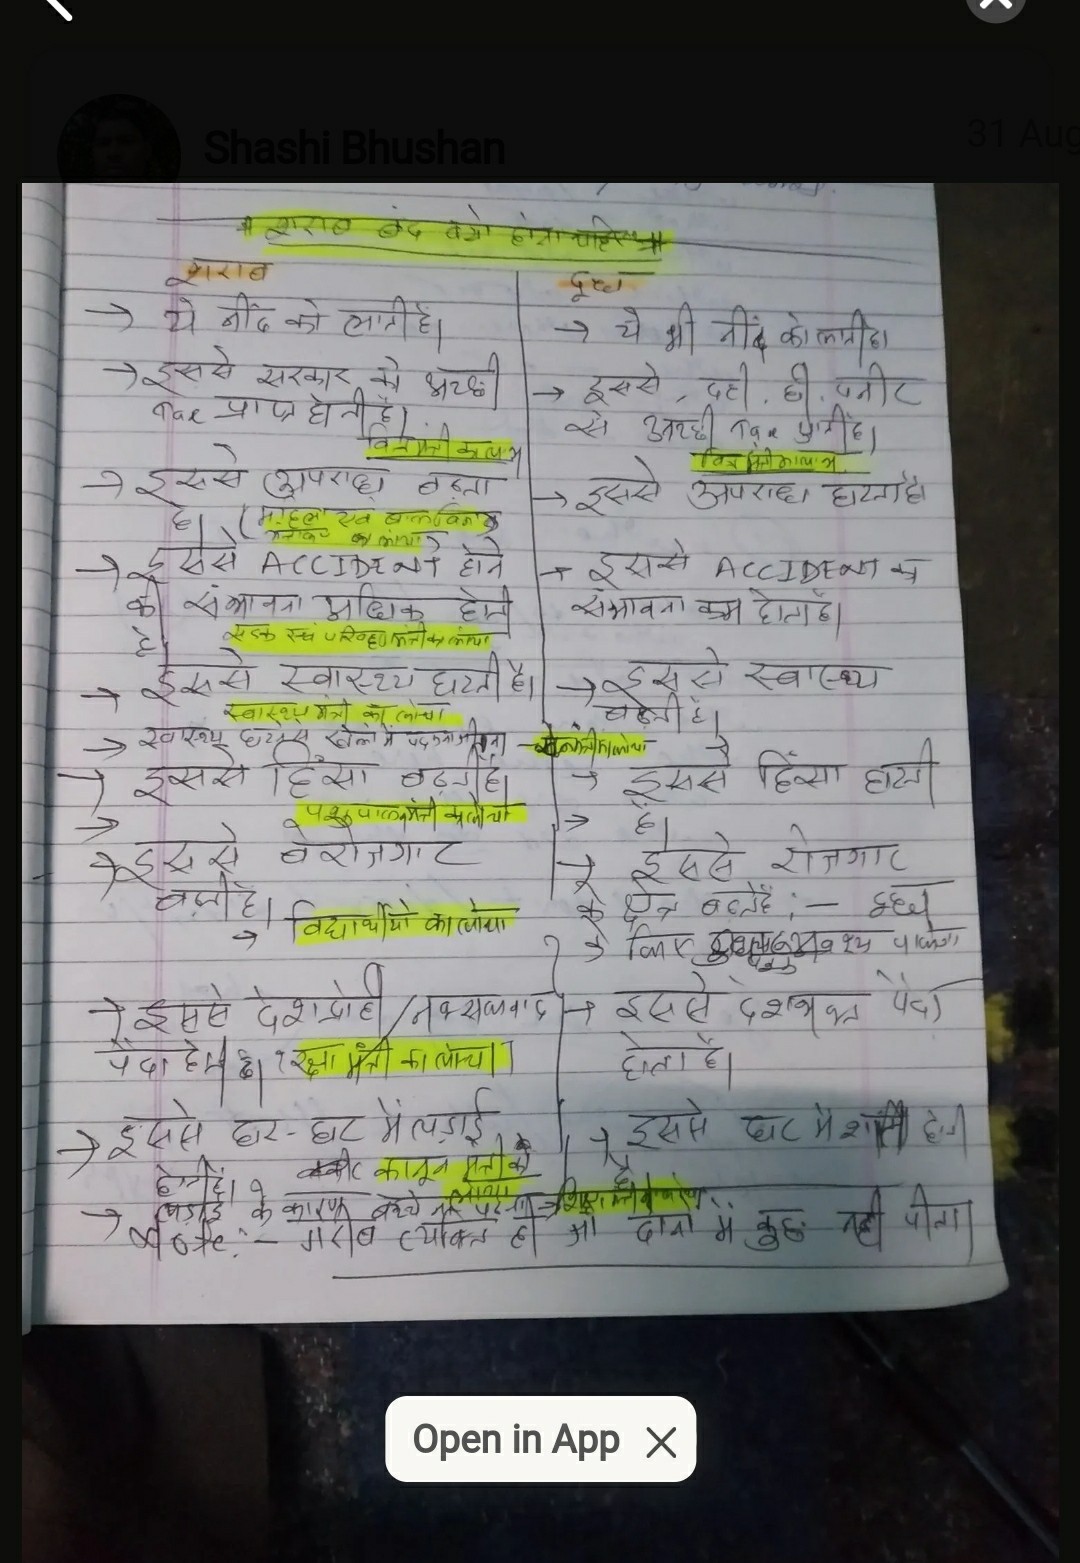 Shashi Bhushan
31 Aug
शराब बंद क्यो होना चाहिए
शराब
दूध
→ ये नींद को लाती है।
→ ये भी नींद को लाती है।
→ इससे सरकार को अच्छी
Tax प्राप्त होती है।
वित्त मंत्री का लाभ
→ इससे, दही, घी, पनीर
से अच्छी Tax आती है।
वित्त मंत्री का लाभ
→ इससे अपराध बढ़ता
है। (महिला एवं बाल विकास
→ इससे अपराध घटता है
→ इससे ACCIDENT होने
की संभावना अधिक होती
है।
सड़क एवं परिवहन मंत्री का लोचा
→ इससे ACCIDENT का
संभावना कम होता है।
→ इससे स्वास्थ्य घटती है।
स्वास्थ्य मंत्री का लोचा
→ इससे स्वास्थ्य
बढ़ती है।
→ स्वास्थ्य घटने से खेलो में पदक
→ इससे हिंसा बढ़ती है।
पशुपालन मंत्री का लोचा
→ इससे हिंसा घटती
→ है।
→ इससे बेरोजगार
बढ़ती है।
→ विद्यार्थीयो का लोचा
→ इससे रोजगार
के क्षेत्र बढ़ते है :— दूध
के लिए
→ इससे देशद्रोही/नक्सलवाद
पैदा होता है। रक्षा मंत्री का लोचा
→ इससे देशभक्त पैदा
होता है।
→ इससे घर-घर में लड़ाई
होती है। कानून मंत्री को
लोचा
→ इससे घर में शांति होती
है।
→ लड़ाई के कारण बच्चे नही पढ़ता → शिक्षा मंत्री
Note:— गरीब व्यक्ति ही जो दोनो में कुछ नही पीता।
Open in App